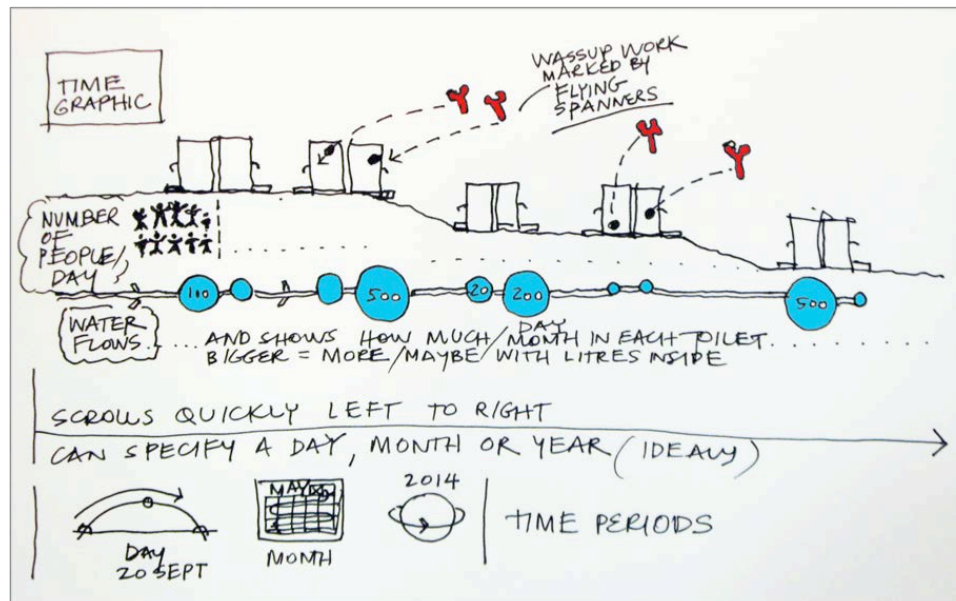 TIME
GRAPHIC
WASSUP WORK
MARKED BY
FLYING
SPANNERS
NUMBER
OF
PEOPLE/
DAY
100
500
20
200
500
WATER
FLOWS
... AND SHOWS HOW MUCH/DAY/MONTH IN EACH TOILET...
BIGGER = MORE/MAYBE/WITH LITRES INSIDE
SCROLLS QUICKLY LEFT TO RIGHT
CAN SPECIFY A DAY, MONTH OR YEAR (IDEALY)
MAY
2014
TIME PERIODS
DAY
20 SEPT
MONTH